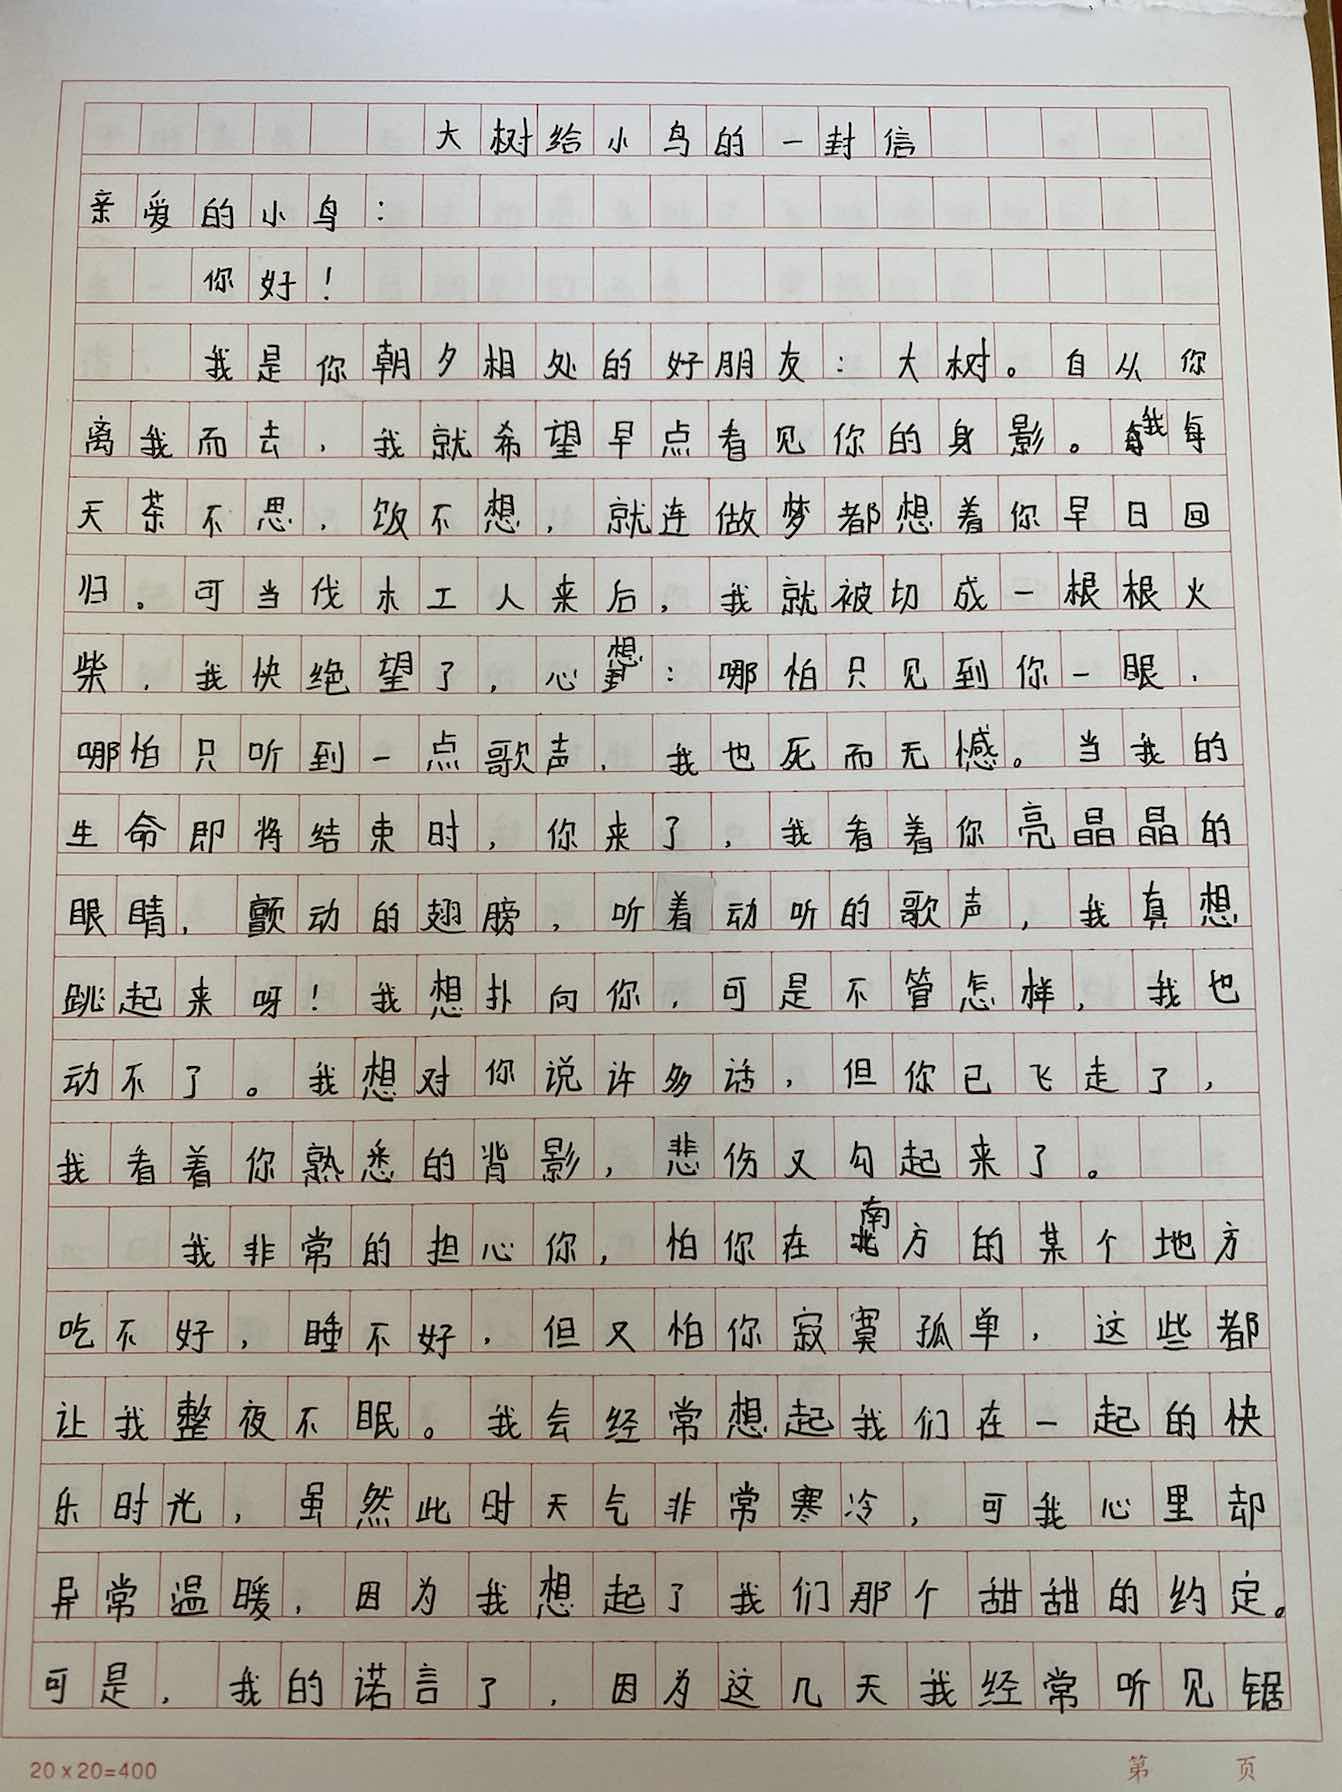 大树给小鸟的一封信
亲爱的小鸟：
你好！
我是你朝夕相处的好朋友：大树。自从你
离我而去，我就希望早点看见你的身影。我每
天茶不思，饭不想，就连做梦都想着你早日回
归。可当伐木工人来后，我就被切成一根根火
柴，我快绝望了，心想：哪怕只见到你一眼，
哪怕只听到一点歌声，我也死而无憾。当我的
生命即将结束时，你来了，我看着你亮晶晶的
眼睛，颤动的翅膀，听着动听的歌声，我真想
跳起来呀！我想扑向你，可是不管怎样，我也
动不了。我想对你说许多话，但你已飞走了，
我看着你熟悉的背影，悲伤又勾起来了。
我非常的担心你，怕你在南方的某个地方
吃不好，睡不好，但又怕你寂寞孤单，这些都
让我整夜不眠。我会经常想起我们在一起的快
乐时光，虽然此时天气非常寒冷，可我心里却
异常温暖，因为我想起了我们那个甜甜的约定。
可是，我的诺言了，因为这几天我经常听见锯
20×20=400
第 页